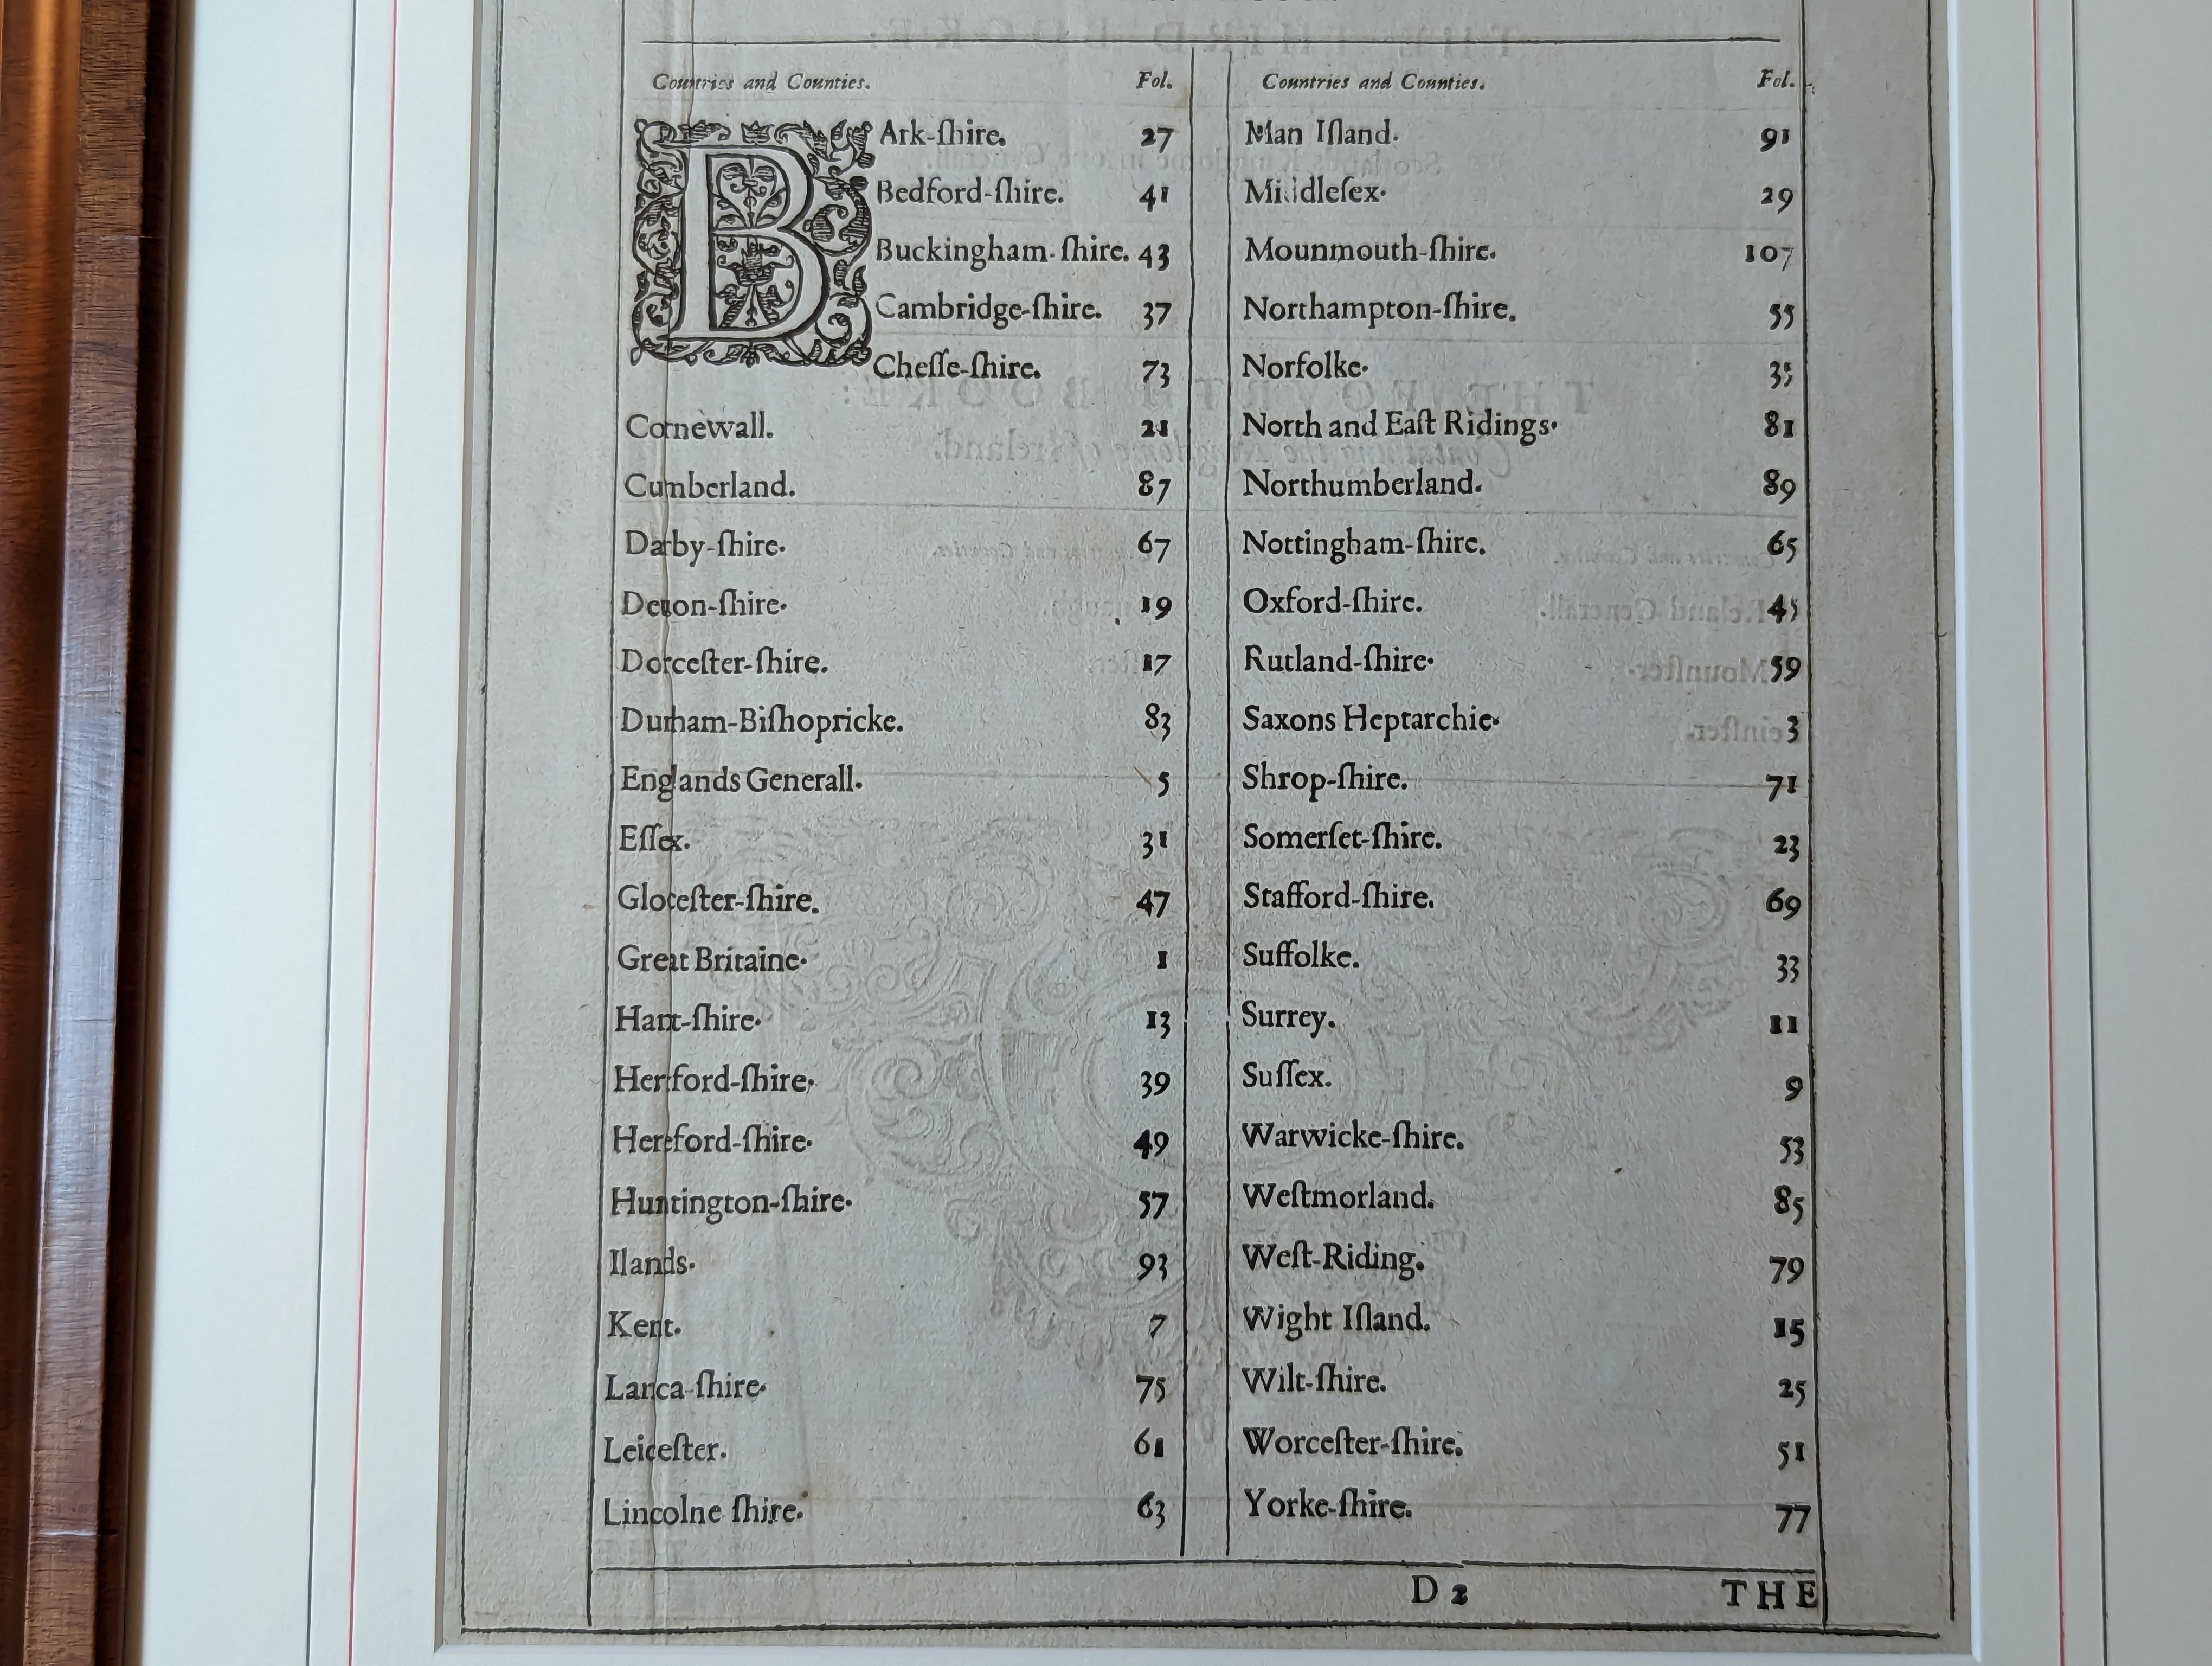 Countries and Counties. Fol.
BArk-ſhire. 27
Bedford-ſhire. 41
Buckingham-ſhire. 43
Cambridge-ſhire. 37
Cheſſe-ſhire. 73
Cornewall. 21
Cumberland. 87
Darby-ſhire. 67
Devon-ſhire. 19
Dorceſter-ſhire. 17
Durham-Biſhopricke. 83
Englands Generall. 5
Eſſex. 31
Gloceſter-ſhire. 47
Great Britaine. 1
Hant-ſhire. 13
Hertford-ſhire. 39
Hereford-ſhire. 49
Huntington-ſhire. 57
Ilands. 93
Kent. 7
Lanca-ſhire. 75
Leiceſter. 61
Lincolne ſhire. 63
Countries and Counties. Fol.
Man Iſland. 91
Middleſex. 29
Mounmouth-ſhire. 107
Northampton-ſhire. 55
Norfolke. 35
North and Eaſt Ridings. 81
Northumberland. 89
Nottingham-ſhire. 65
Oxford-ſhire. 45
Rutland-ſhire. 59
Saxons Heptarchie. 3
Shrop-ſhire. 71
Somerſet-ſhire. 23
Stafford-ſhire. 69
Suffolke. 33
Surrey. 11
Suſſex. 9
Warwicke-ſhire. 53
Weſtmorland. 85
Weſt-Riding. 79
Wight Iſland. 15
Wilt-ſhire. 25
Worceſter-ſhire. 51
Yorke-ſhire. 77
D 2 THE